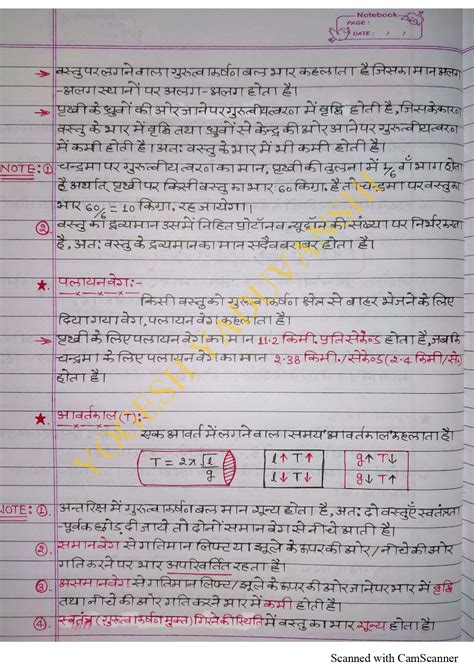 Notebook
PAGE :
DATE : / /
→ वस्तु पर लगने वाला गुरुत्वाकर्षण बल भार कहलाता है जिसका मान अलग
-अलग स्थानों पर अलग-अलग होता है।
→ पृथ्वी के ध्रुवों की ओर जाने पर गुरुत्वीय त्वरण में वृद्धि होती है, जिसके कारण
वस्तु के भार में वृद्धि तथा ध्रुवों से केन्द्र की ओर आने पर गुरुत्वीय त्वरण
में कमी होती है। अतः वस्तु के भार में भी कमी होती है।
NOTE:① चन्द्रमा पर गुरुत्वीय त्वरण का मान, पृथ्वी की तुलना में 1/6 वाँ भाग होता
है अर्थात् पृथ्वी पर किसी वस्तु का भार 60 किग्रा. है तो चन्द्रमा पर वस्तु का
भार 60/6 = 10 किग्रा. रह जायेगा।
②. वस्तु का द्रव्यमान उसमें निहित प्रोटॉन व न्यूट्रॉन की संख्या पर निर्भर करता
है, अतः वस्तु के द्रव्यमान का मान सदैव बराबर होता है।
★. पलायन वेग:-
किसी वस्तु को गुरुत्वाकर्षण क्षेत्र से बाहर भेजने के लिए
दिया गया वेग, पलायन वेग कहलाता है।
→ पृथ्वी के लिए पलायन वेग का मान 11.2 किमी. प्रति सेकेण्ड होता है, जबकि
चन्द्रमा के लिए पलायन वेग का मान 2.38 किमी./सेकेण्ड (2.4 किमी/से.)
होता है।
★ आवर्तकाल (T):-
एक आवर्त में लगने वाला समय 'आवर्तकाल' कहलाता है।
T = 2π√l/g
l↑ T↑
l↓ T↓
g↑ T↓
g↓ T↑
NOTE:①. अन्तरिक्ष में गुरुत्वाकर्षण बल मान शून्य होता है, अतः दो वस्तुएँ स्वतंत्रता
-पूर्वक छोड़ दी जाये तो दोनों समान वेग से नीचे आती है।
②. समान वेग से गतिमान लिफ्ट या झूले के ऊपर की ओर/नीचे की ओर
गति करने पर भार अपरिवर्तित रहता है।
③. असमान वेग से गतिमान लिफ्ट/झूले के ऊपर की ओर जाने पर भार में वृद्धि
तथा नीचे की ओर गति करने भार में कमी होती है।
④. स्वतंत्र (गुरुत्वाकर्षण मुक्त) गिरने की स्थिति में वस्तु का भार शून्य होता है।
YOGESH YADUVANSHI
Scanned with CamScanner